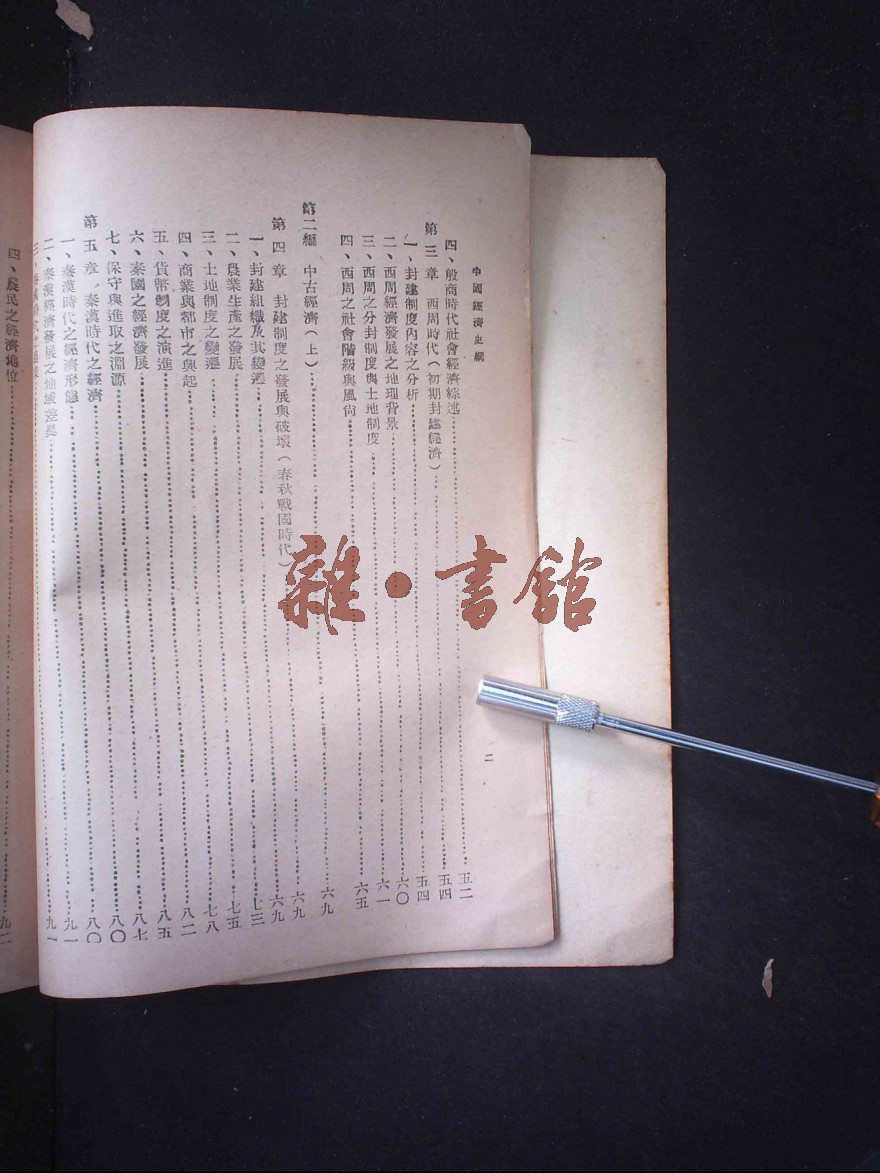 中國經濟史綱
四、殷商時代社會經濟綜述……五二
第三章 西周時代(初期封建經濟)……五四
一、封建制度內容之分析……五四
二、西周經濟發展之地理背景……六〇
三、西周之分封制度與土地制度……六一
四、西周之社會階級與風尚……六五
第二編 中古經濟(上)……六九
第四章 封建制度之發展與破壞(春秋戰國時代)……六九
一、封建組織及其變遷……六九
二、農業生產之發展……七三
三、土地制度之變遷……七五
四、商業與都市之興起……七八
五、貨幣制度之演進……八二
六、秦國之經濟發展……八五
七、保守與進取之淵源……八七
第五章 秦漢時代之經濟……八〇
一、秦漢時代之經濟形態……八〇
二、秦漢經濟發展之地域差異……九一
三、……九一
四、農民之經濟地位……九二
二
雜·書館